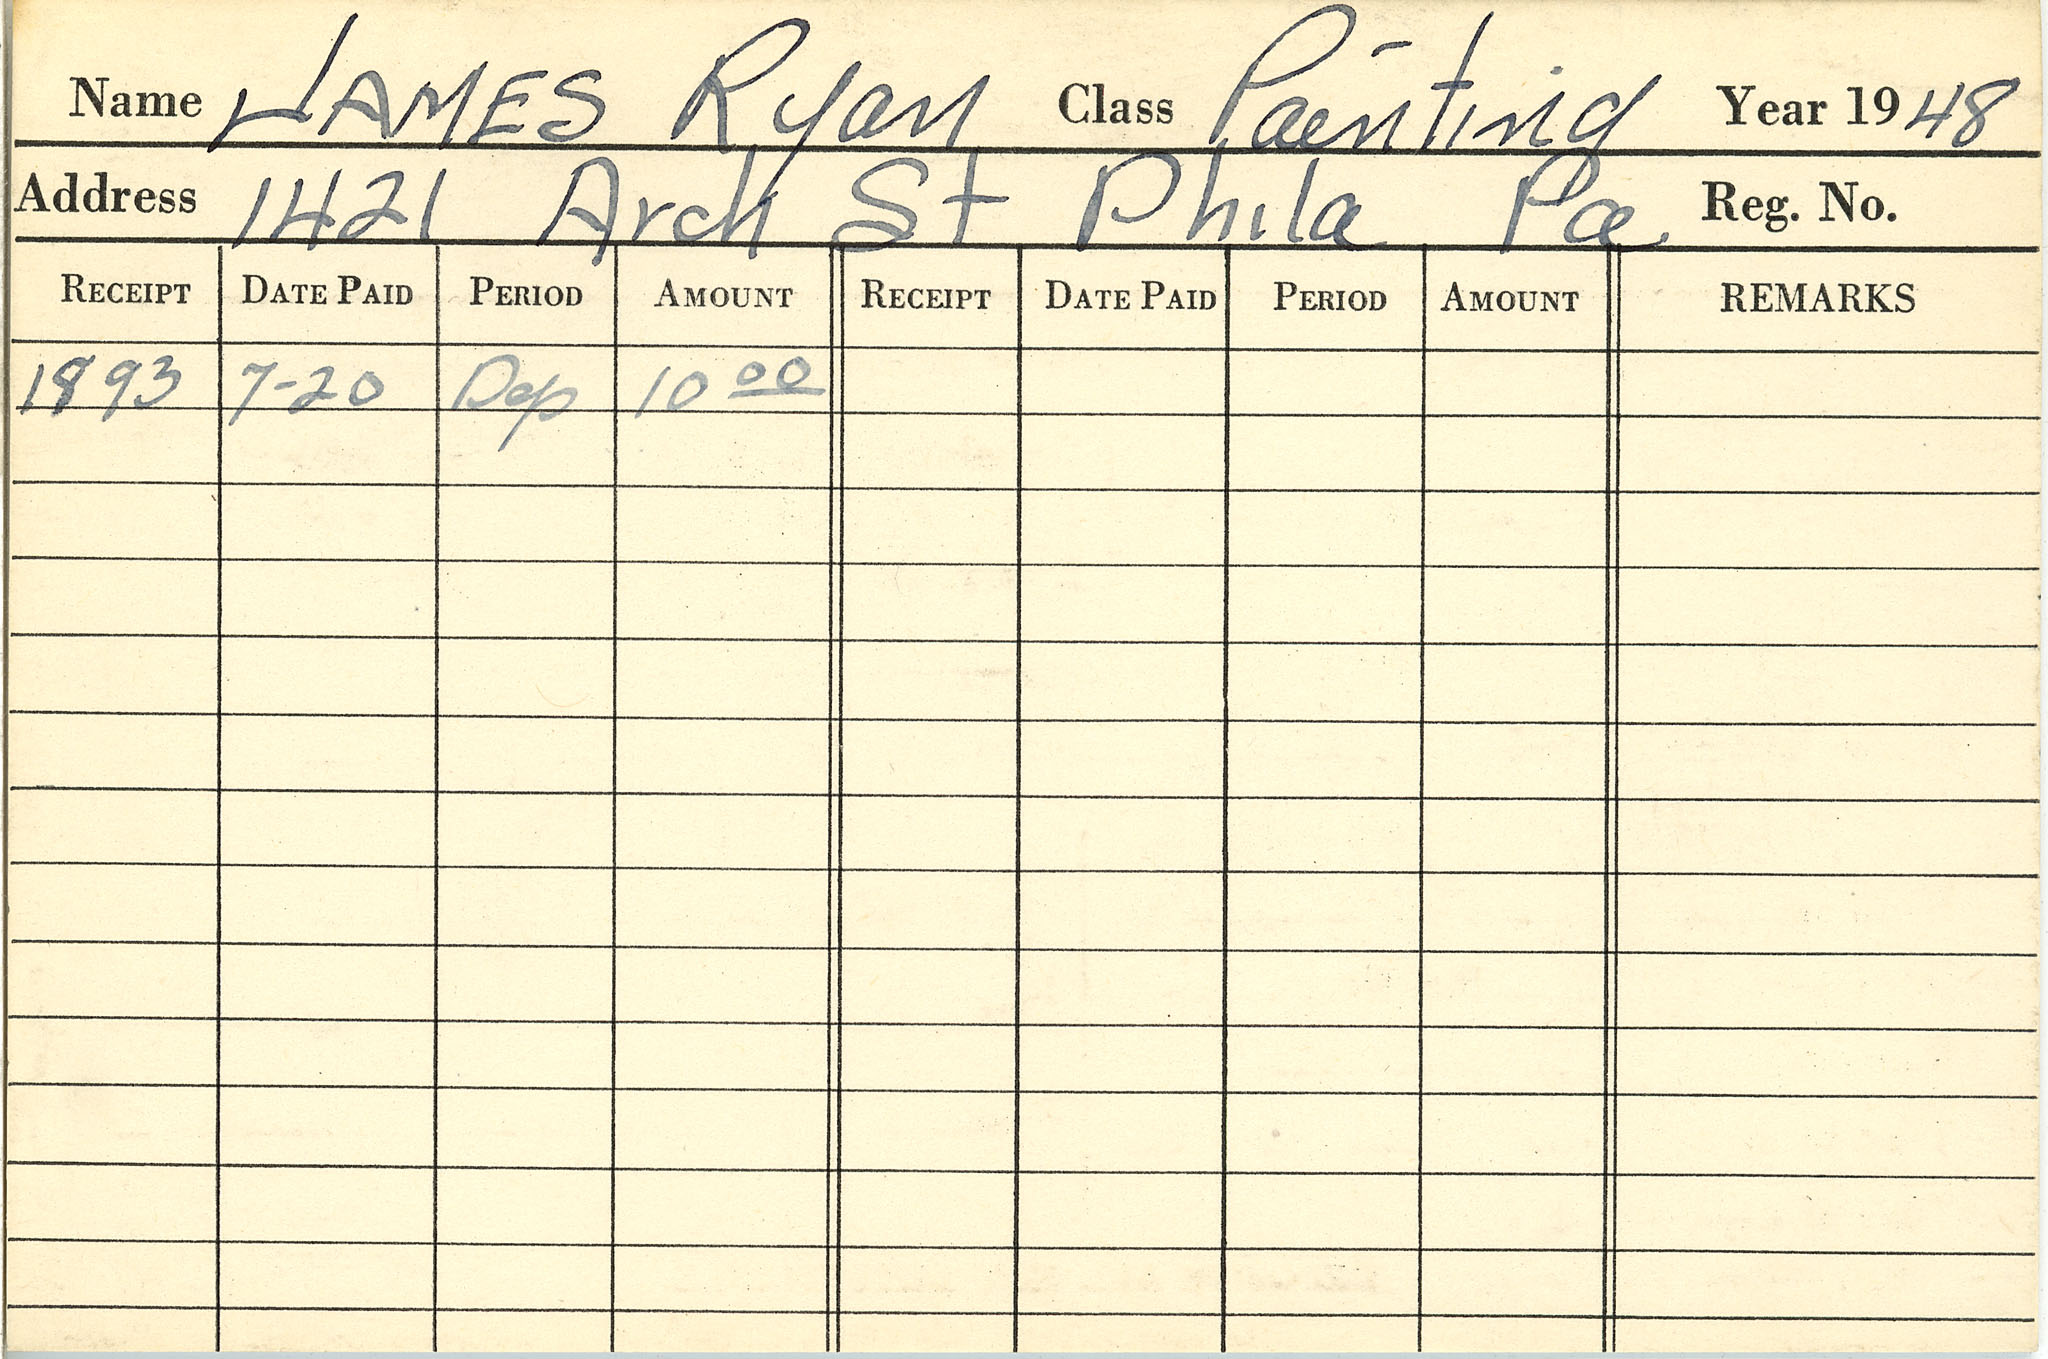 Name JAMES Ryan Class Painting Year 1948
Address 1421 Arch St Phila Pa Reg. No.
RECEIPT DATE PAID PERIOD AMOUNT RECEIPT DATE PAID PERIOD AMOUNT REMARKS
1893 7-20 Dep 10 00